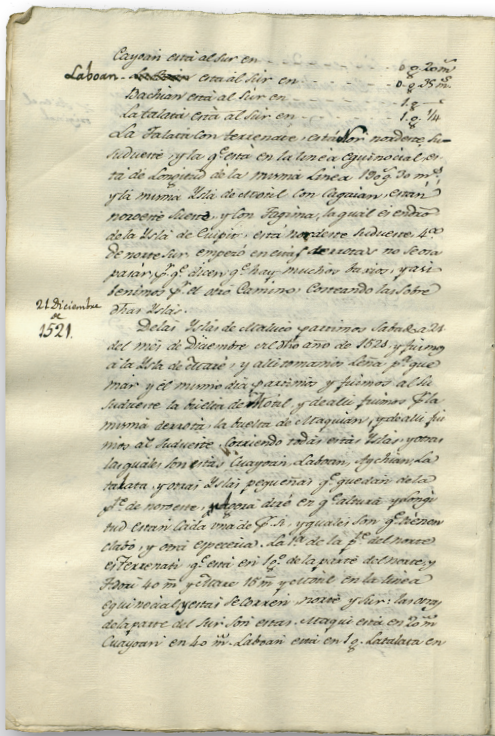 Cayoan está al sur en - - - - 0 g. 20 m̃
Laboan - está al Sur en - - - - 0 g. 35 m̃
Bachian está al Sur en - - - - 1. g.
Latalata está al Sur en - - - - 1. g. 1/4
La Talata con terrenate, está Nor nordeste Su-
sudueste, y la q.e está en la linea equinocial, es-
tá de Longitud de la misma Linea 190 g. 30 m.s,
y la misma Ysla de Motil con Cagaian, están
noroeste Sueste, y con Tagima, la qual es enero
de la Ysla de Cuipit, está nordeste sudueste, 4.ta
de norte sur, empero en estas derrotas no se osa
pasar, p.r q.e dicen q.e hay muchos baxos, y asi
benimos p.r el otro Camino, Conteando las sobre
dhas Yslas.
21 Diciembre
de
1521.
De las Yslas de Maluco partimos Sabado a 21
del mes de Diciembre el dho año de 1521 y fuimos
a la Ysla de Mare, y alli tomamos leña p.a que
mar y el mismo dia partimos y fuimos al Su
sudueste la buelta de Motil, y de alli fuimos p.r la
misma derrota la buelta de Maquian, y de alli fui
mos al sudueste Corriendo todas estas Yslas, y otras
las quales son estas Cuayoan, Laboan, Bachian, La
talata, y otras Yslas pequeñas q.e quedan de la
p.te de noroeste, y agora diré en q.e altura y longi
tud estan Cada una de p.r si, y quales son q.e tienen
clabo, y otra especeria. La 1.a de la p.te del norte
es Terrenati q.e está en 1 g.o de la parte del norte, y
Tidori 40 m̃ y Mare 15 m̃ y Motil en la linea
equinocial, y estas Se Corren norte y sur: las otras
de la parte del Sur son estas. Maqui está en 20 m̃
Cuayoan en 40 m̃. Laboan está en 1 g. Latalata en